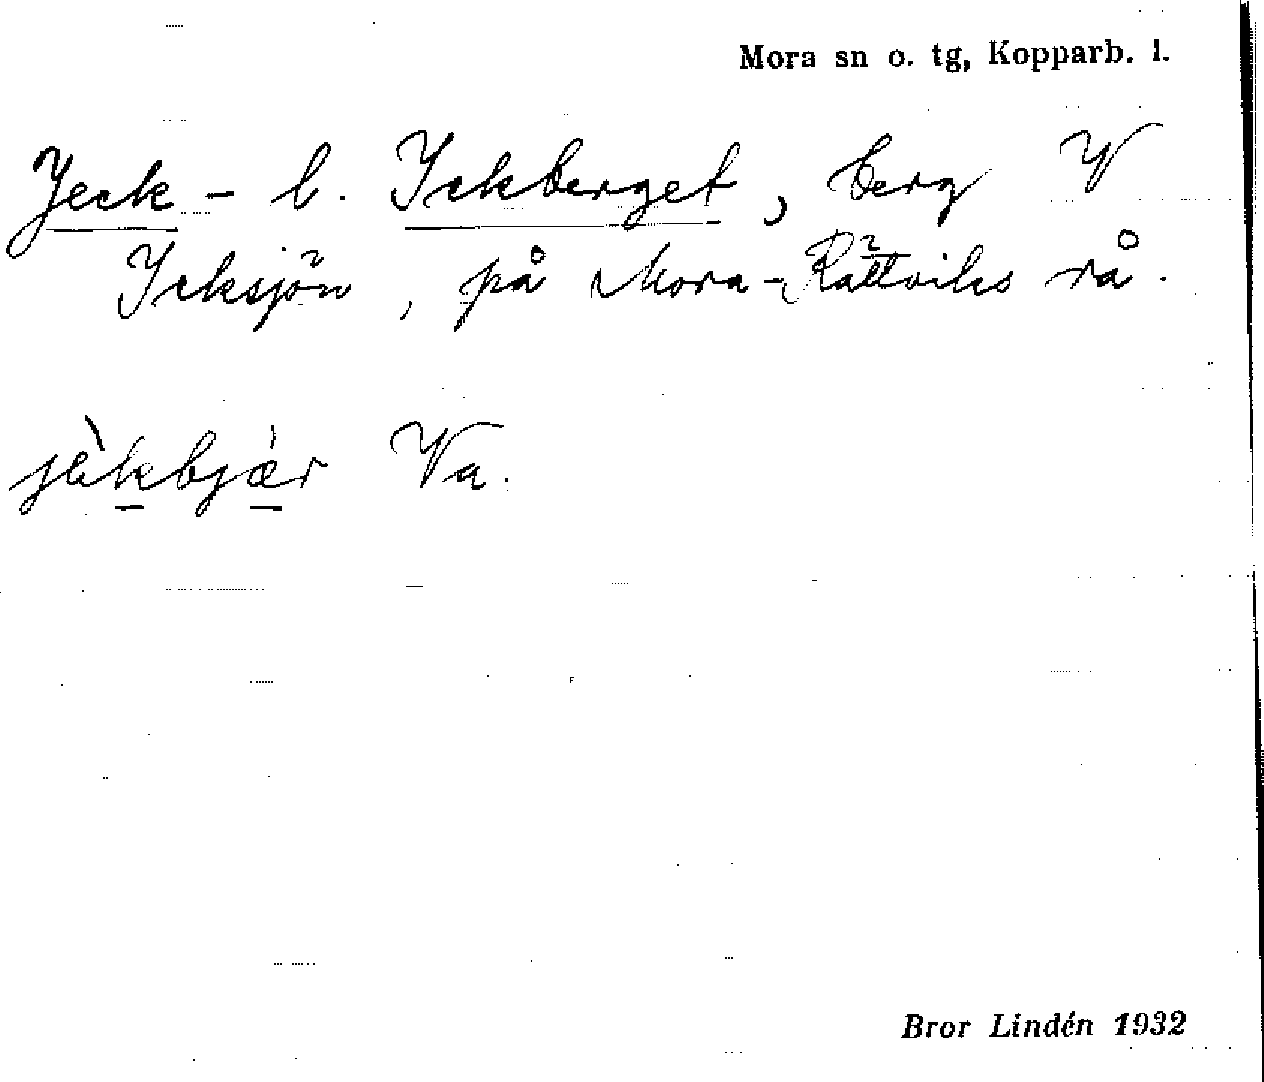 Mora sn o. tg, Kopparb. l.
Jeck- l. Ickberget, berg V
Icksjön, på Mora-Rättviks rå.
jèkbjær Va.
Bror Lindén 1932